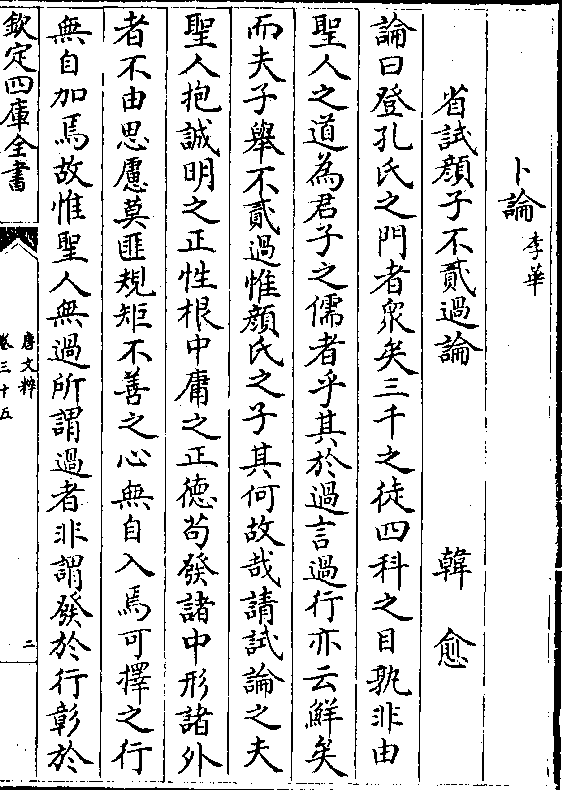 卜論李華
省試顏子不貳過論 韓愈
論曰登孔氏之門者衆矣三千之徒四科之目孰非由
聖人之道為君子之儒者乎其於過言過行亦云鮮矣
而夫子舉不貳過惟顏氏之子其何故哉請試論之夫
聖人抱誠明之正性根中庸之正德茍發諸中形諸外
者不由思慮莫匪規矩不善之心無自入焉可擇之行
無自加焉故惟聖人無過所謂過者非謂發於行彰於
欽定四庫全書
唐文粹
卷三十五
二